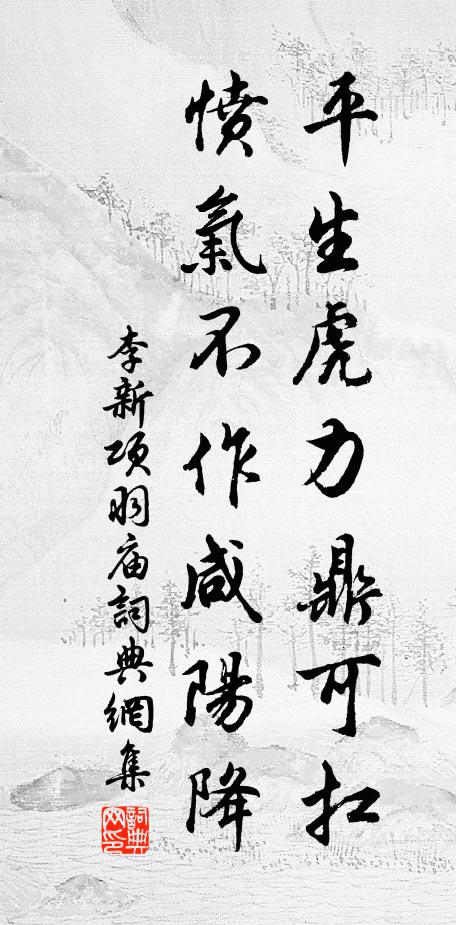 平生虎力鼎可扛
憤氣不作咸陽降
李新項羽庙詞典網集
詞典網印